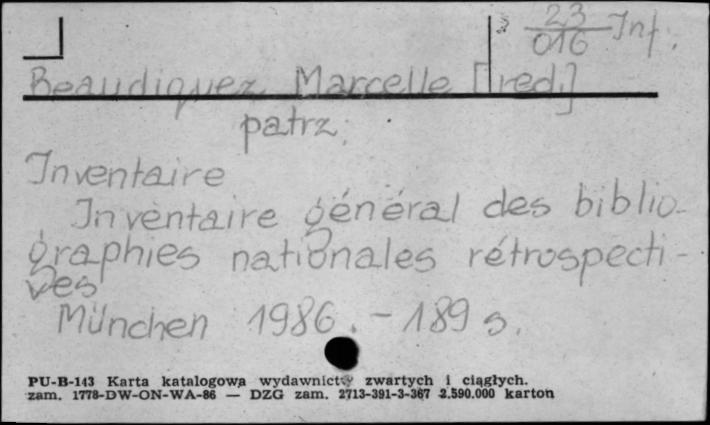 23
016 Inf.
Beaudiquez Marcelle [red.]
patrz:
Inventaire
Inventaire général des biblio-
graphies nationales rétrospecti-
ves
München 1986. - 189 s.
PU-B-143 Karta katalogowa wydawnictw zwartych i ciągłych.
zam. 1778-DW-ON-WA-86 — DZG zam. 2713-391-3-367 2.590.000 karton